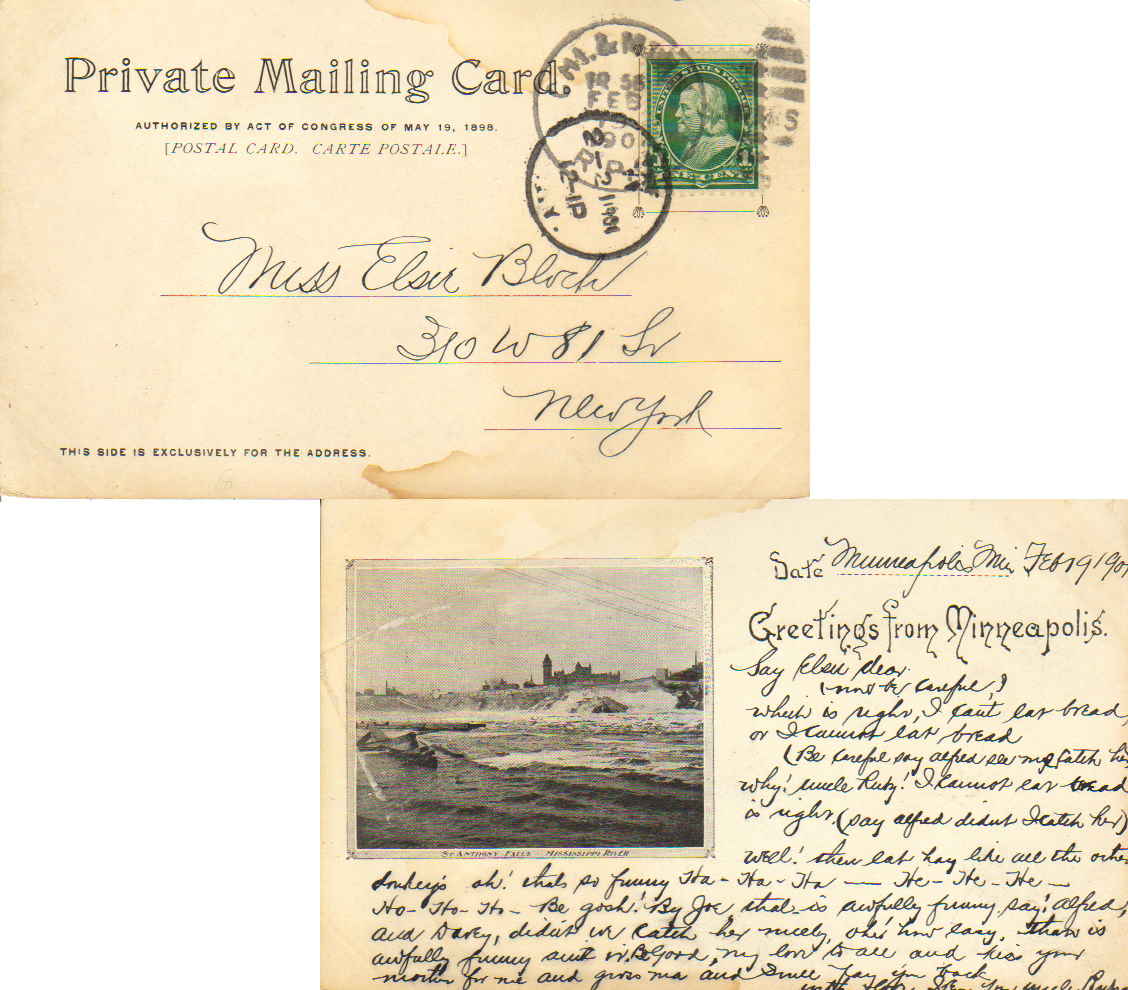 Private Mailing Card.
AUTHORIZED BY ACT OF CONGRESS OF MAY 19, 1898.
[POSTAL CARD. CARTE POSTALE.]
FEB
UNITED STATES POSTAGE
ONE CENT
12-1P
Miss Elsie Bloch
310 W 81 St
New York
THIS SIDE IS EXCLUSIVELY FOR THE ADDRESS.
Date Minneapolis Min Feb 19 190
Greetings from Minneapolis.
Say Elsie dear
(now be careful,)
which is right, I can't eat bread,
or I cannot eat bread
(Be careful say alfred see me catch her
Why! uncle Ruby! I cannot eat bread
is right (say alfred didnt I catch her)
Well! then eat hay like all the other
donkeys oh! thats so funny Ha-Ha-Ha — He-He-He-
Ho-Ho-Ho- Be gosh! By Joe, that-is awfully funny, say! alfred,
and Davey, didnt we catch her nicely, oh! how easy, that is
awfully funny aint it. Be Good, my love to all and kiss your
mother for me and gross ma and I will pay you back
ST ANTHONY FALLS - MISSISSIPPI RIVER